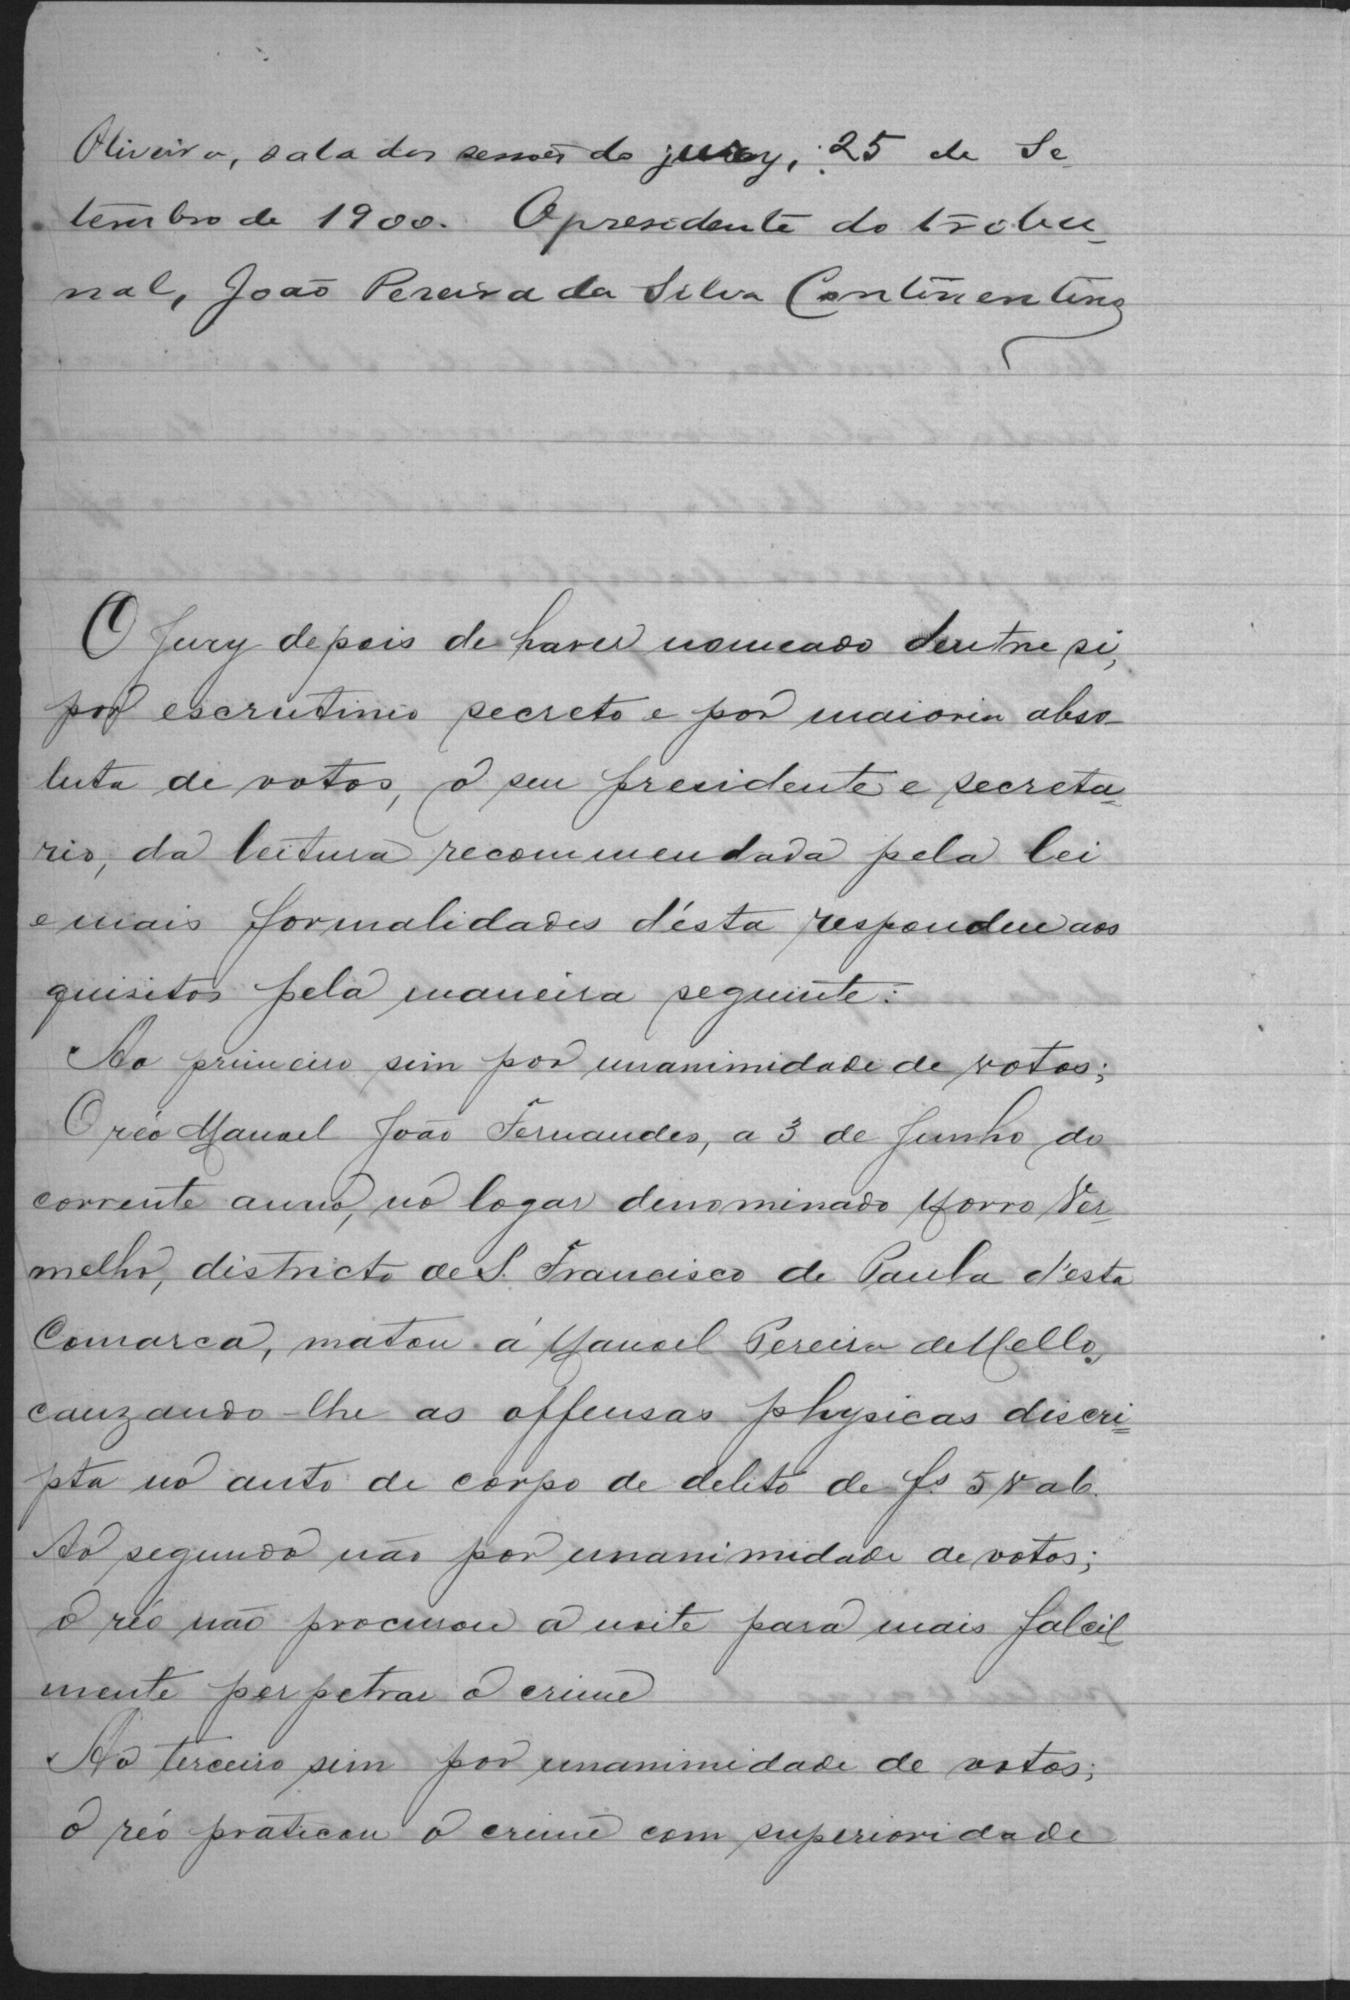 Oliveira, sala das sessões do jury, 25 de Se-
tembro de 1900. O presidente do tribu-
nal, João Pereira da Silva Continentino
O Jury depois de haver nomeado dentre si,
por escrutinio secreto e por maioria abso-
luta de votos, o seu presidente e secreta-
rio, da leitura recommendada pela lei
e mais formalidades d'ésta respondeu aos
quisitos pela maneira seguinte:
Ao primeiro sim por unanimidade de votos;
O réo Manoel João Fernandes, a 3 de Junho do
corrente anno, no logar denominado Morro Ver-
melho, districto de S. Francisco de Paula d'esta
Comarca, matou á Manoel Pereira de Mello,
cauzando-lhe as offensas physicas discri-
pta no auto de corpo de delito de fs. 5 v a 6.
Ao segundo não por unanimidade de votos;
o réo não procurou a noite para mais falcil
mente perpetrar o crime
Ao terceiro sim por unanimidade de votos;
o réo praticou o crime com superioridade